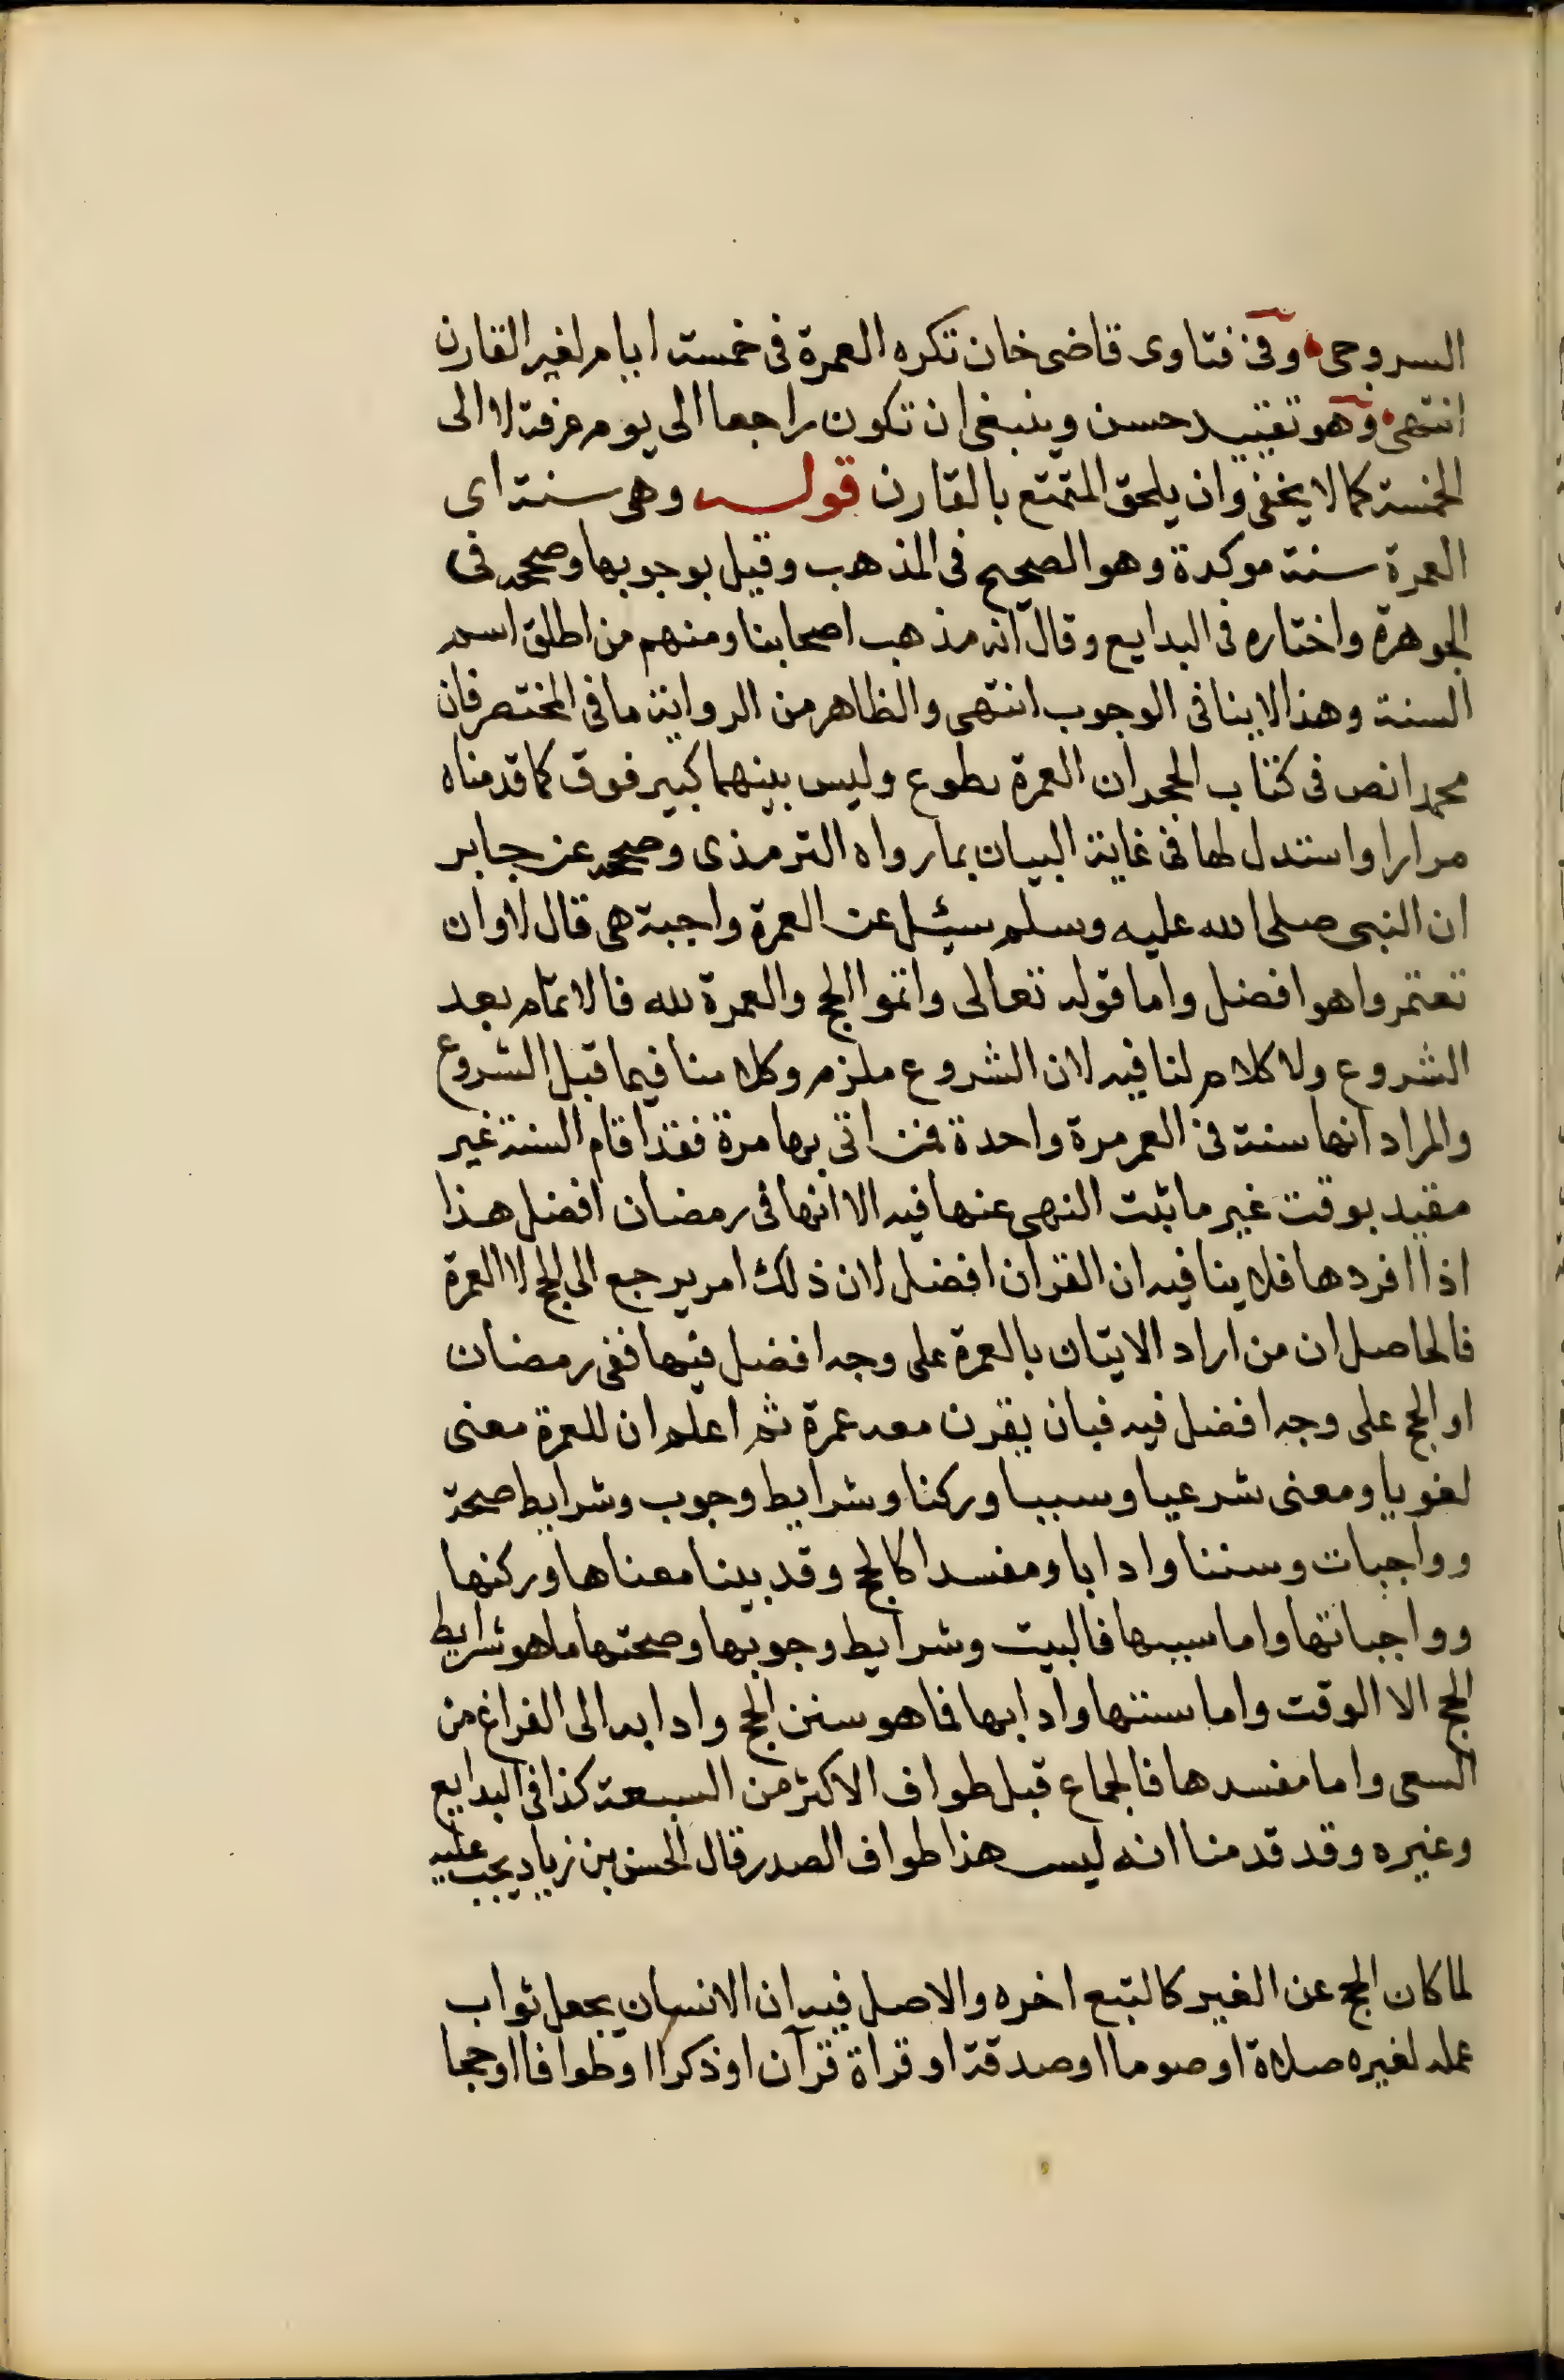 السروجى وفى فتاوى قاضى خان تكره العمرة فى خمسة ايام لغير القارن
انتهى وهو تقييد حسن وينبغى ان تكون راجعا الى يوم عرفة لا الى
الخمسة كما لا يخفى وان يلحق المتمتع بالقارن قوله وهى سنة اى
العمرة سنة موكدة وهو الصحيح فى المذهب وقيل بوجوبها وصححه فى
الجوهرة واختاره فى البدايع وقال انه مذهب اصحابنا ومنهم من اطلق اسم
السنة وهذا لا ينافى الوجوب انتهى والظاهر من الرواية ما فى المختصر فان
محمدا نص فى كتاب الحجر ان العمرة تطوع وليس بينهما كبير فوق كما قدمناه
مرارا واستدل لها فى غاية البيان بما رواه الترمذى وصححه عن جابر
ان النبى صلى الله عليه وسلم سيئل عن العمرة واجبة هى قال لا وان
تعتمروا هو افضل واما قوله تعالى واتموا الحج والعمرة لله فالاتمام بعد
الشروع ولا كلام لنا فيه لان الشروع ملزم وكلامنا فيما قبل الشروع
والمراد انها سنة فى العمر مرة واحدة فمن اتى بها مرة فقد اقام السنة غير
مقيد بوقت غير ما ثبت النهى عنها فيه الا انها فى رمضان افضل هذا
اذا افردها فلا ينافيه ان القران افضل لان ذلك امر يرجع الى الحج لا العمرة
فالحاصل ان من اراد الاتيان بالعمرة على وجه افضل فيها ففى رمضان
او الحج على وجه افضل فيه فبان يقرن معه عمرة ثم اعلم ان للعمرة معنى
لغويا ومعنى شرعيا وسببا وركنا وشرايط وجوب وشرايط صحة
وواجبات وسننا وادابا ومفسدا كالحج وقد بينا معناها وركنها
وواجباتها واما سببها فالبيت وشرايط وجوبها وصحتها ما هو شرايط
الحج الا الوقت واما سننها وادابها فما هو سنن الحج وادابه الى الفراغ من
السعى واما مفسدها فالجماع قبل طواف الاكثر من السبعة كذا فى البدايع
وغيره وقد قدمنا انه ليس هذا طواف الصدر قال الحسن بن زياد يجب عليه
لما كان الحج عن الغير كالتبع اخره والاصل فيه ان الانسان يجعل ثواب
عمله لغيره صلاة او صوما او صدقة او قراة قرآن او ذكرا او طوافا او حجا